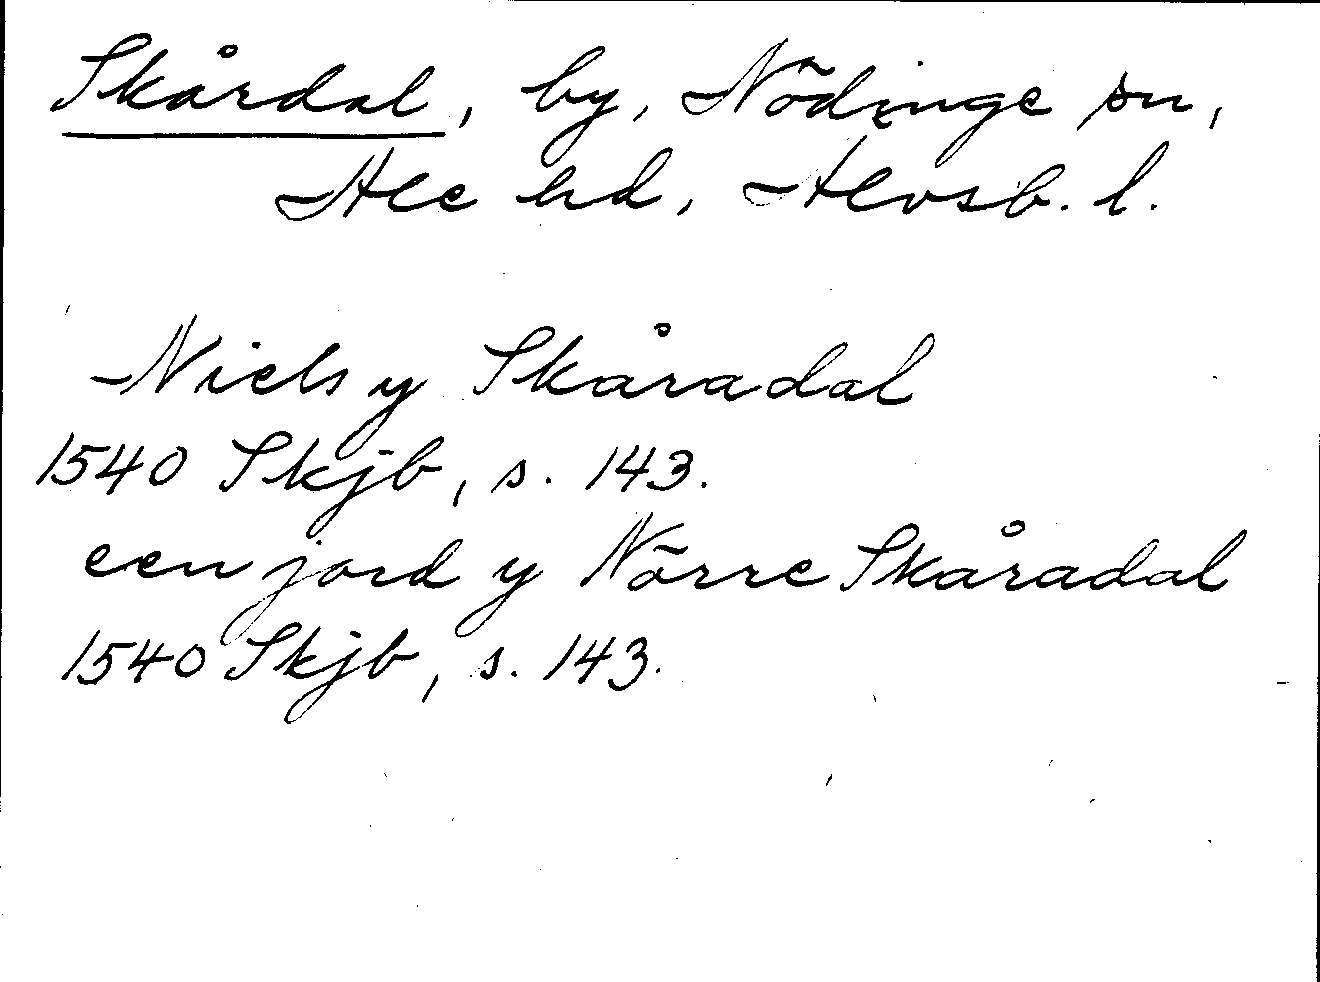 Skårdal, by, Nödinge sn,
Ale hd, Älvsb. l.
Niels y Skåradal
1540 Skjb, s. 143.
een jord y Nörre Skåradal
1540 Skjb, s. 143.